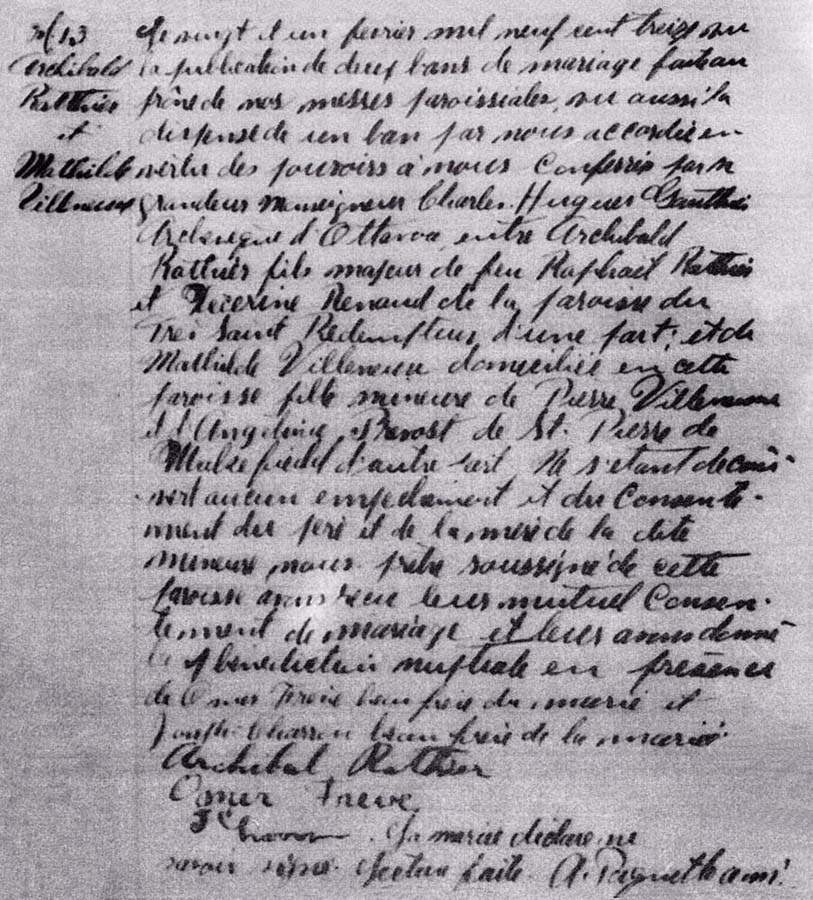 M13
Archibald
Rathier
et
Mathilde
Villeneuve
Le vingt et un fevrier mil neuf cent treize vu
la publication de deux bans de mariage faite au
prône de nos messes paroissiales, vu aussi la
dispense de un ban par nous accordée en
vertu des pouvoirs à nous conferrés par sa
grandeur monseigneur Charles Hugues Gauthier
Archevêque d'Ottawa, entre Archibald
Rathier fils majeur de feu Raphael Rathier
et Renaud de la paroisse du
Très Saint Redempteur, d'une part; et de
Mathilde Villeneuve domiciliée en cette
paroisse fille mineure de Pierre Villeneuve
et d'Angelina Prevost de St. Pierre de
d'autre part, Ne s'étant decou-
vert aucun empechement et du consente-
ment du père et de la mère de la dite
mineure, nous prêtre soussigné de cette
paroisse avons recu leur mutuel consen-
tement de mariage et leur avons donné
la bénédiction nuptiale en présence
de Omer Freve beau frere du marié et
Joseph Charron beau frère de la mariée
Archibal Rathier
Omer Freve
J Charron La mariée déclare ne
savoir signer. Lecture faite. A. Paquette